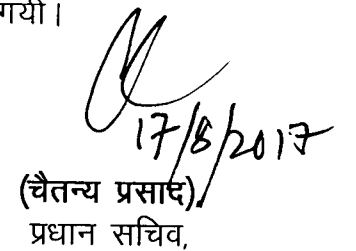 गयी।
17/8/2017
(चैतन्य प्रसाद)
प्रधान सचिव,